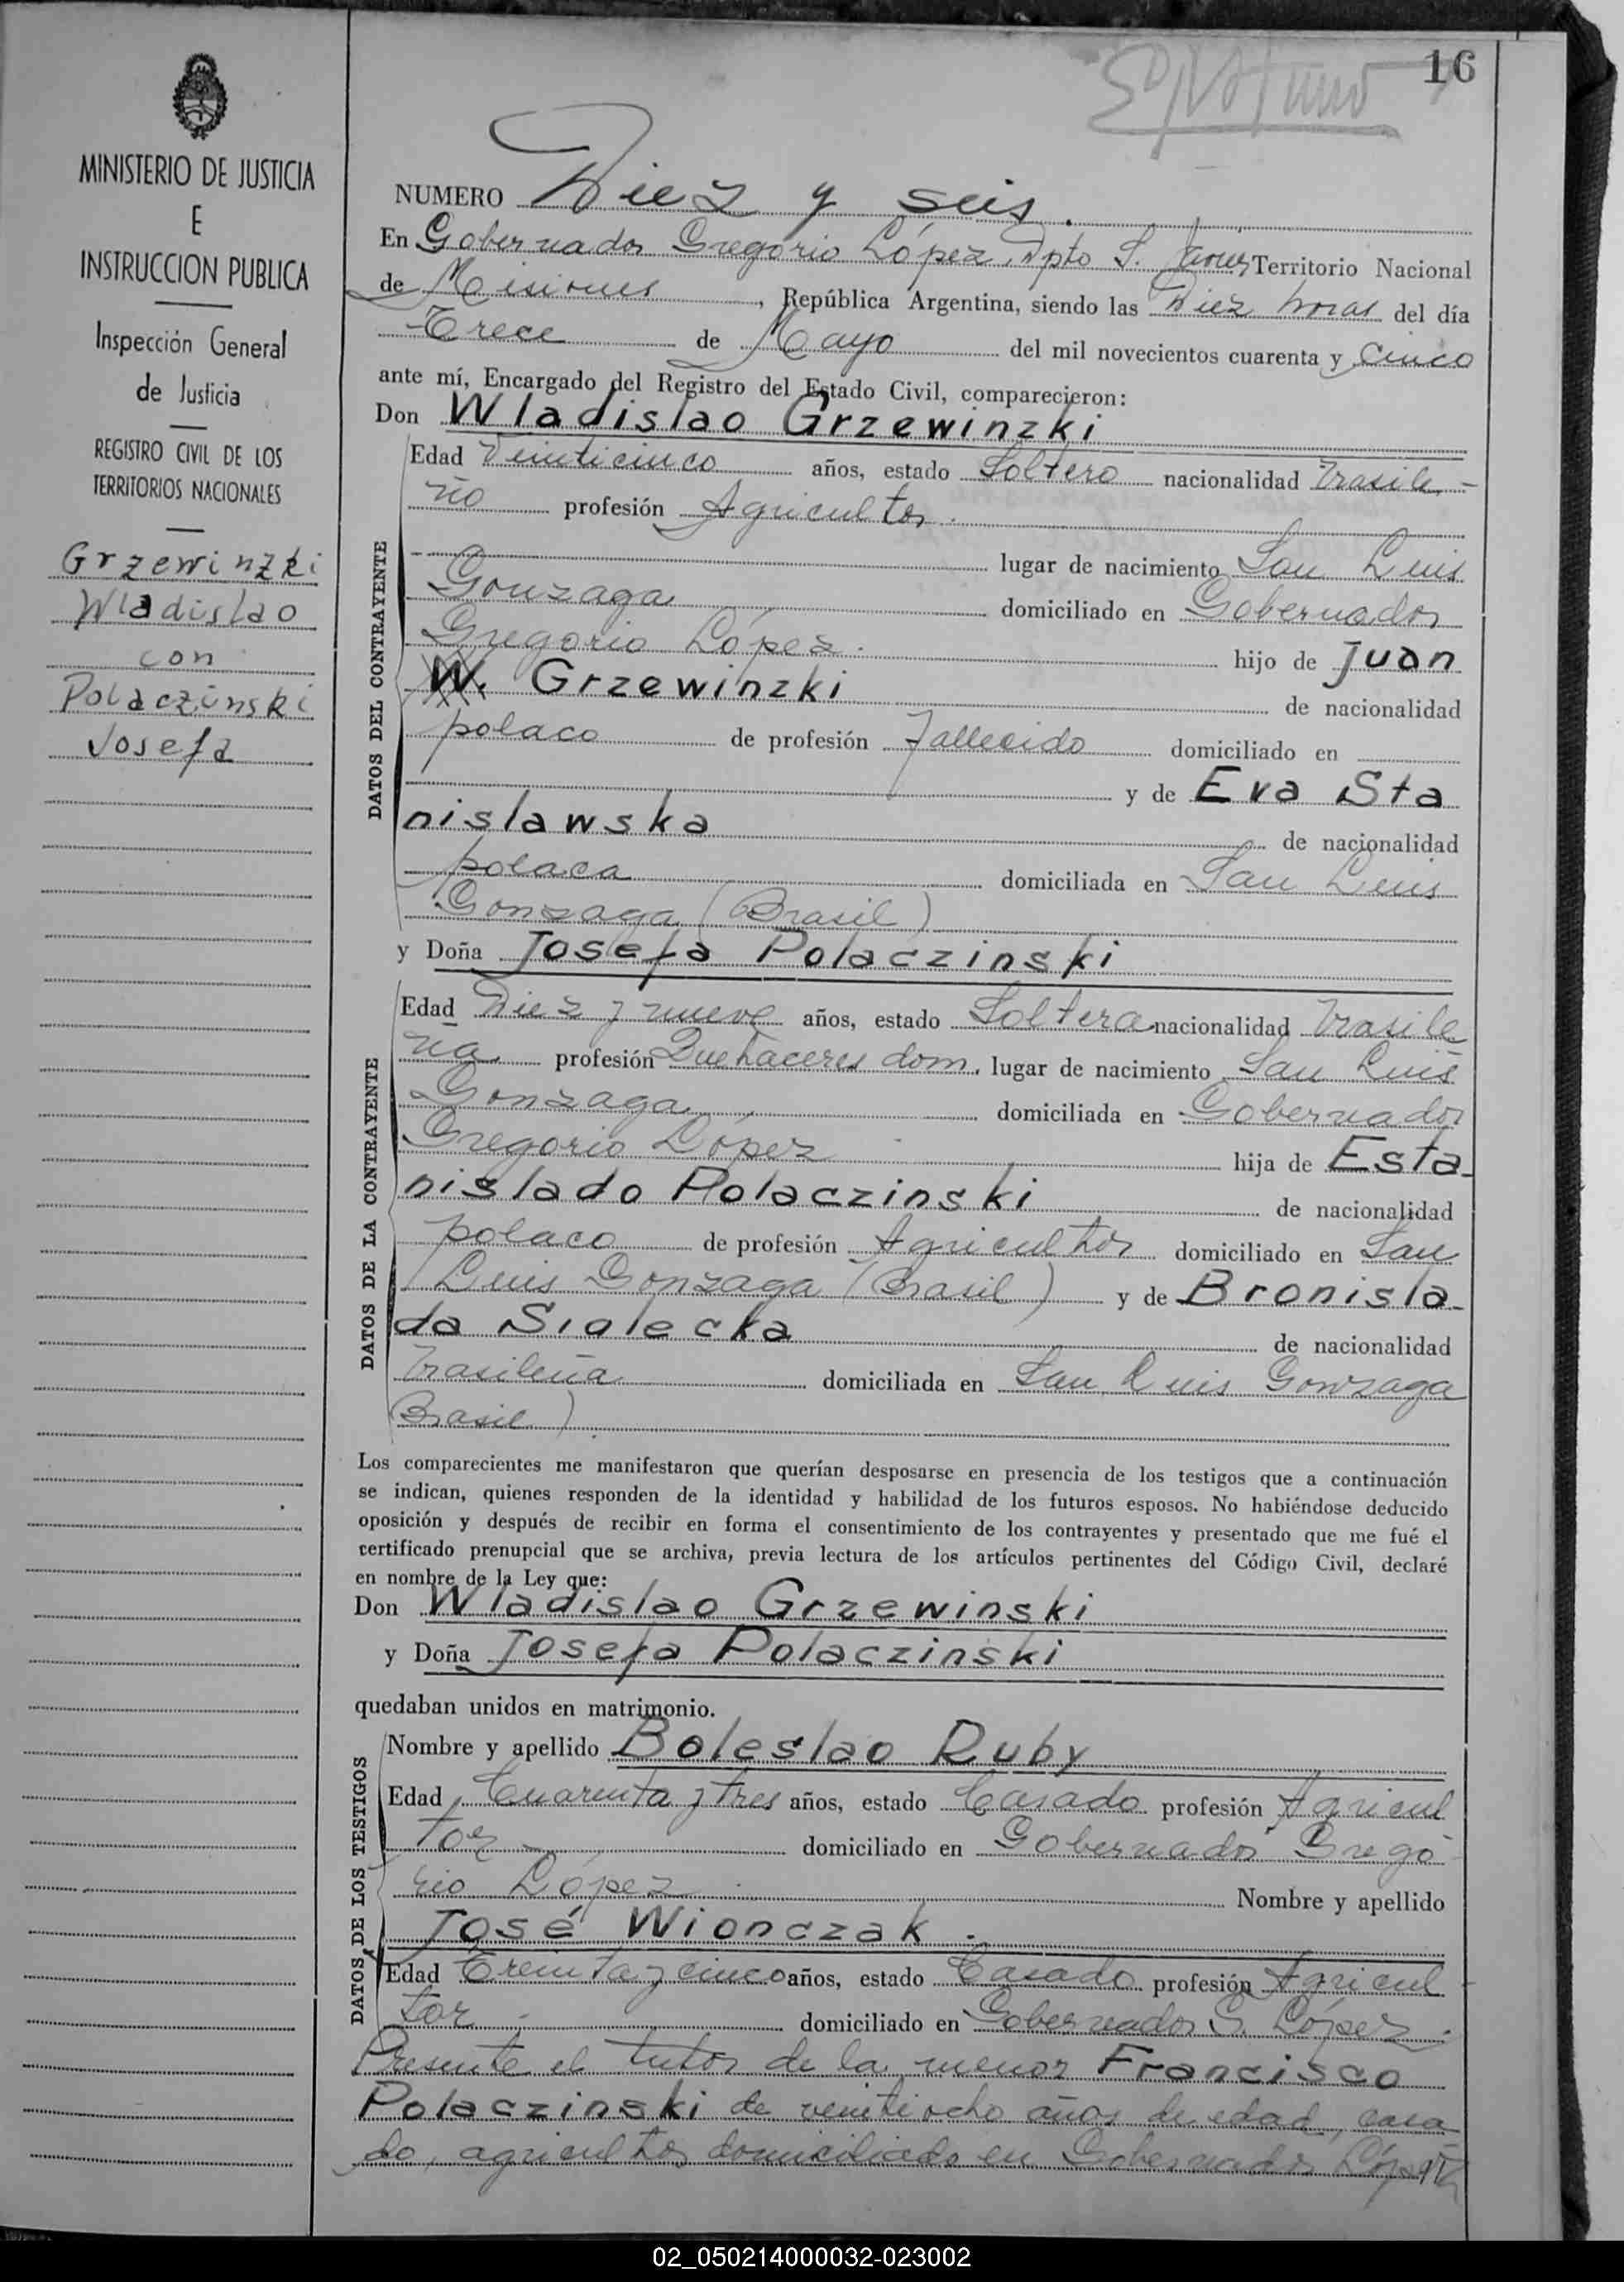 16
MINISTERIO DE JUSTICIA
E
INSTRUCCION PUBLICA
Inspección General
de Justicia
REGISTRO CIVIL DE LOS
TERRITORIOS NACIONALES
Grzewinzki
Wladislao
con
Polaczinski
Josefa
NUMERO Diez y seis.
En Gobernador Gregorio López, Dpto S. Javier Territorio Nacional
de Misiones, República Argentina, siendo las Diez horas del día
Trece de Mayo del mil novecientos cuarenta y Cinco
ante mí, Encargado del Registro del Estado Civil, comparecieron:
Don Wladislao Grzewinzki
DATOS DEL CONTRAYENTE
Edad Veinticinco años, estado Soltero nacionalidad brasile-
ño profesión Agricultor.
lugar de nacimiento San Luis
Gonzaga domiciliado en Gobernador
Gregorio López. hijo de Juan
W. Grzewinzki de nacionalidad
polaco de profesión Fallecido domiciliado en
y de Eva Sta
nislawska de nacionalidad
polaca domiciliada en San Luis
Gonzaga (Brasil)
y Doña Josefa Polaczinski
DATOS DE LA CONTRAYENTE
Edad Diez y nueve años, estado Soltera nacionalidad brasile
ña profesión Quehaceres dom. lugar de nacimiento San Luis
Gonzaga domiciliada en Gobernador
Gregorio López hija de Esta-
nislado Polaczinski de nacionalidad
polaco de profesión Agricultor domiciliado en San
Luis Gonzaga (Brasil) y de Bronisla-
da Sialecka de nacionalidad
brasileña domiciliada en San Luis Gonzaga
(Brasil).
Los comparecientes me manifestaron que querían desposarse en presencia de los testigos que a continuación
se indican, quienes responden de la identidad y habilidad de los futuros esposos. No habiéndose deducido
oposición y después de recibir en forma el consentimiento de los contrayentes y presentado que me fué el
certificado prenupcial que se archiva, previa lectura de los artículos pertinentes del Código Civil, declaré
en nombre de la Ley que:
Don Wladislao Grzewinski
y Doña Josefa Polaczinski
quedaban unidos en matrimonio.
DATOS DE LOS TESTIGOS
Nombre y apellido Boleslao Ruby
Edad Cuarenta y tres años, estado Casado profesión Agricul
tor domiciliado en Gobernador Grego
rio López. Nombre y apellido
José Wionczak.
Edad Treinta y cinco años, estado Casado profesión Agricul
tor domiciliado en Gobernador G. López.
Presente el tutor de la menor Francisco
Polaczinski de veintiocho años de edad, casa
do, agricultor domiciliado en Gobernador López
02_050214000032-023002